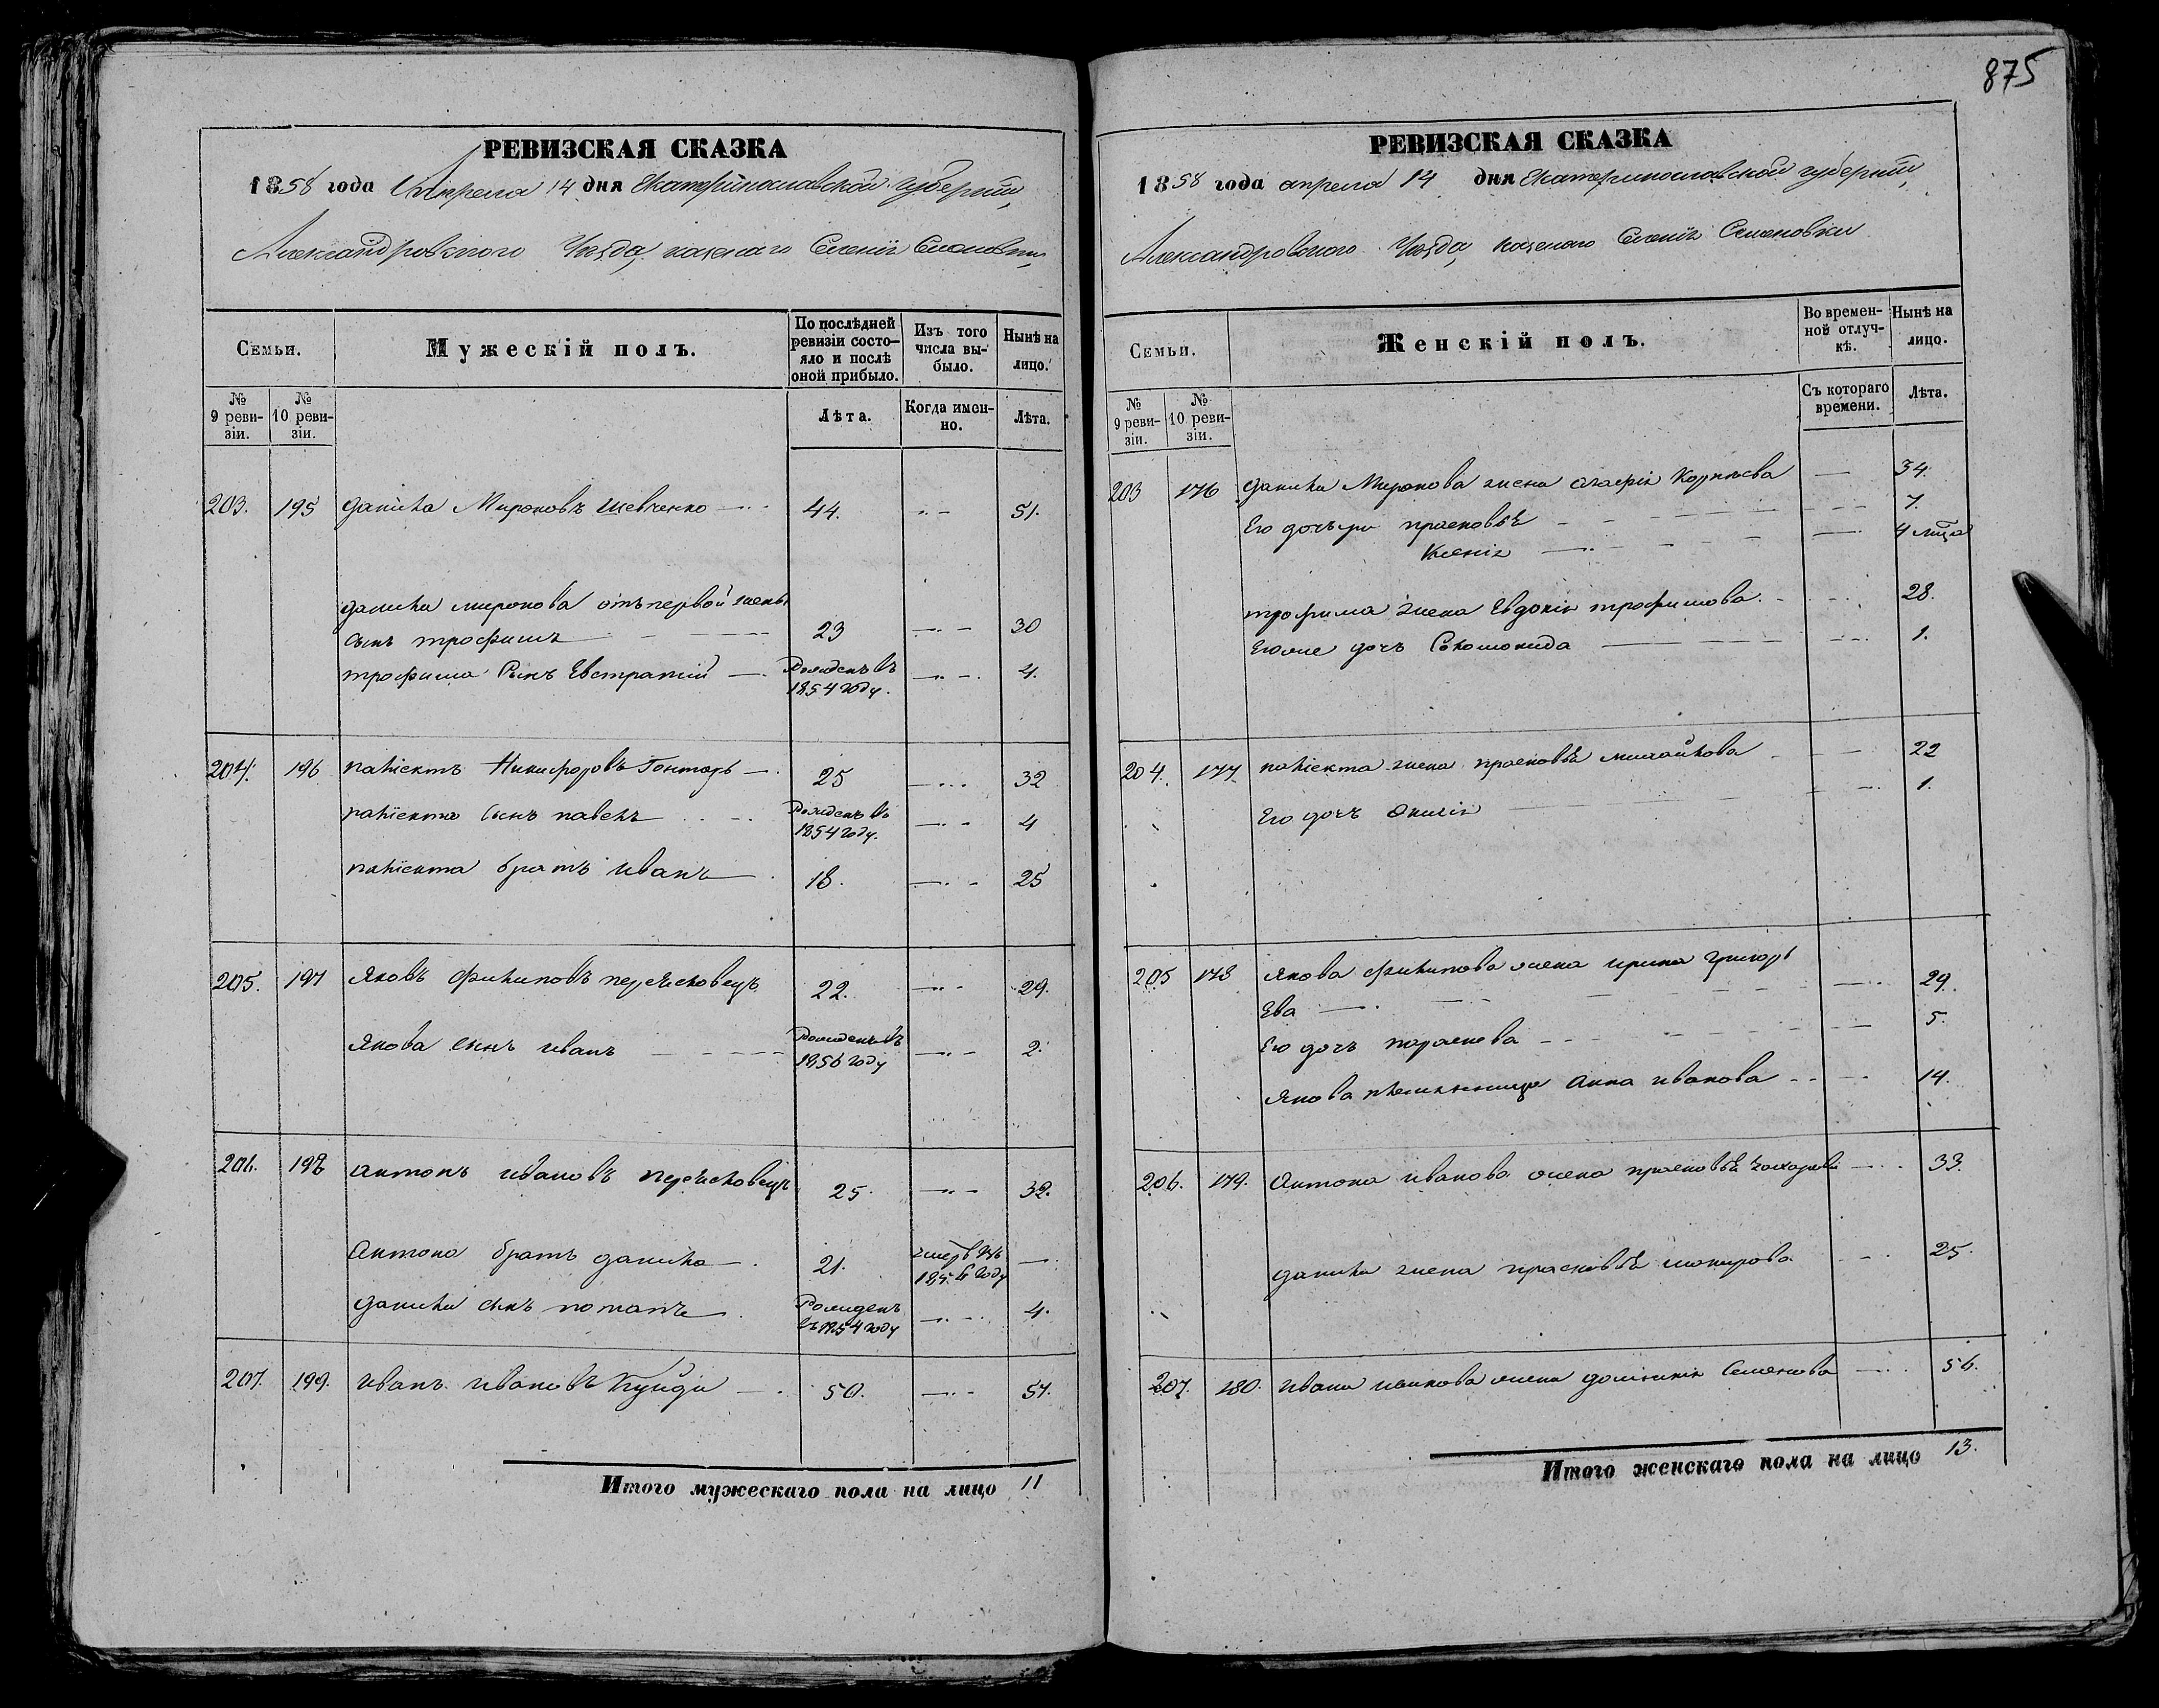 875
РЕВИЗСКАЯ СКАЗКА
1858 года Апреля 14 дня Екатеринославской губернии,
Александровского Уезда, казенаго Селения Семеновки
Семьи.
Мужескій полъ.
По послѣдней ревизіи состояло и послѣ оной прибыло.
Изъ того числа выбыло.
Нынѣ на лицо.
№ 9 ревизіи.
№ 10 ревизіи.
Лѣта.
Когда именно.
Лѣта.
203. 195 данила Мироновъ Шевченко 44. 51.
данила миронова отъ первой жены
сынъ трофимъ 23 30
трофима Сынъ Евстратий Рожденъ въ 1854 году. 4.
204. 196 Никифоровъ Гонтарь 25 32
сынъ павелъ Рожденъ въ 1854 году. 4
братъ иванъ 18. 25
205. 197 Яковъ филиповъ 22. 29.
Якова сынъ иванъ Рожденъ въ 1856 году 2.
206. 198 антонъ ивановъ 25. 32.
Антона братъ данила 21. году
данилы сынъ потапъ Рожденъ въ 1854 году 4.
207. 199. иванъ ивановъ 50. 57.
Итого мужескаго пола на лицо 11
РЕВИЗСКАЯ СКАЗКА
1858 года апреля 14 дня Екатеринославской губернии,
Александровского Уезда, казенаго Селения Семеновки
Семьи.
Женскій полъ.
Во временной отлучкѣ.
Нынѣ на лицо.
№ 9 ревизіи.
№ 10 ревизіи.
Съ котораго времени.
Лѣта.
203 176 данила Миронова жена агафия 34.
Его дочъри прасковья 7.
Ксения 4
трофима жена Евдокия трофимова. 28.
Его же дочъ 1.
204. 177 жена прасковья михайлова 22
Его дочъ 1.
205 178 Якова филипова жена ирина григорь
Ева 29.
Его дочъ параскева 5.
Якова племянница анна иванова 14.
206. 179. Антона иванова жена прасковья 33.
данилы жена прасковья 25.
207. 180. ивана иванова жена Семенова 56.
Итого женскаго пола на лицо 13.